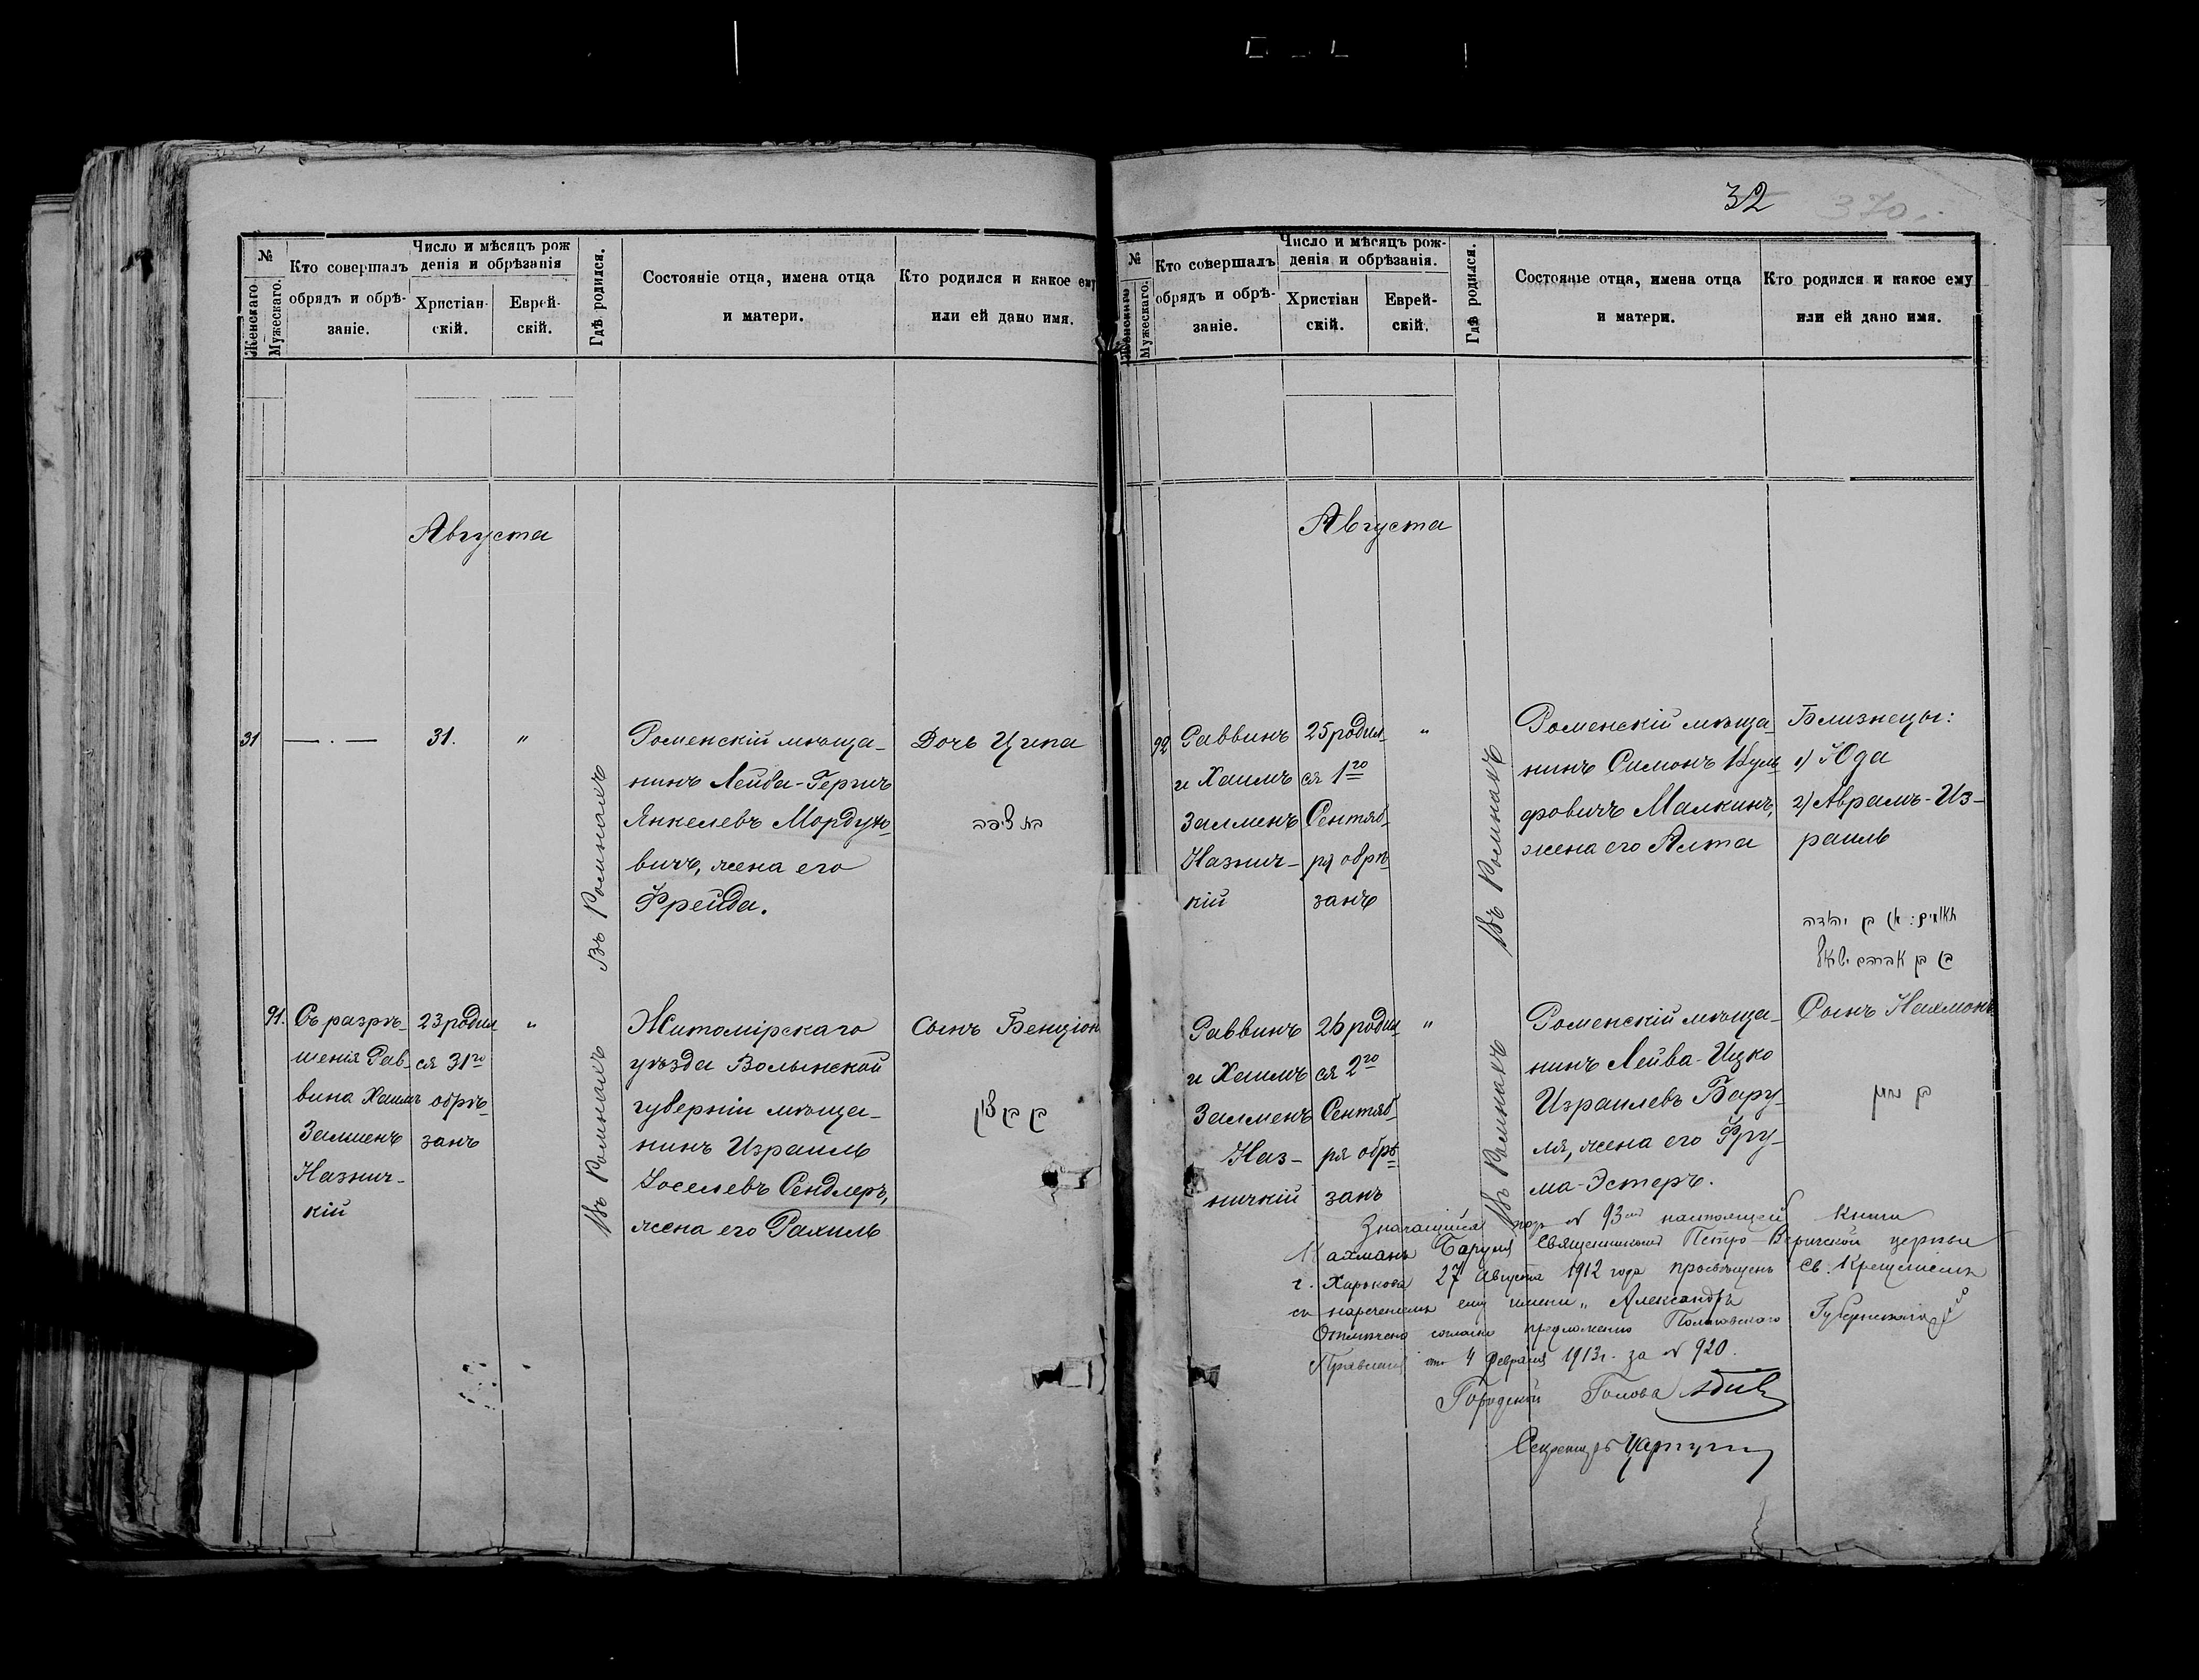 №
Женскаго.
Мужескаго.
Кто совершалъ
обрядъ и обрѣ-
заніе.
Число и мѣсяцъ рож
денія и обрѣзанія
Христіан-
скій.
Еврей-
скій.
Гдѣ родился.
Состояніе отца, имена отца
и матери.
Кто родился и какое ему
или ей дано имя.
Августа
31
31.
"
Въ Ромнахъ
Роменскій мѣща-
нинъ Лейба-Гершъ
Янкелевъ Мордухо-
вичъ, жена его
Фрейда.
Дочь Ципа
בת ציפה
91.
Съ разрѣ-
шенія Рав-
вина Хаимъ
Залменъ
Назнич-
кій
23 родил
ся 31го
обрѣ-
занъ
"
Въ Ромнахъ
Житомірскаго
уѣзда Волынской
губерніи мѣща-
нинъ Израиль
Іоселевъ Сендлеръ,
жена его Рахиль
Сынъ Бенціон
בן בן ציון
32
370.
№
Женскаго
Мужескаго.
Кто совершалъ
обрядъ и обрѣ-
заніе.
Число и мѣсяцъ рож-
денія и обрѣзанія.
Христіан
скій.
Еврей-
скій.
Гдѣ родился.
Состояніе отца, имена отца
и матери.
Кто родился и какое ему
или ей дано имя.
Августа
92
Раввинъ
и Хаимъ
Залменъ
Назнич-
кій
25 родил-
ся 1го
Сентяб-
ря обрѣ
занъ
"
Въ Ромнахъ
Роменскій мѣща-
нинъ Симонъ
фовичъ Малкинъ,
жена его Алта
Близнецы:
1) Юда
2) Аврамъ-Из-
раиль
תאומים: א) בן יהודה
ב) בן אברהם ישראל
Раввинъ
и Хаимъ
Залменъ
Наз-
ничкій
26 родил-
ся 2го
Сентяб-
ря обрѣ
занъ
"
Въ Ромнахъ
Роменскій мѣща-
нинъ Лейба-Ицко
Израилевъ Бару-
ля, жена его Фру-
ма-Эстеръ.
Сынъ Нахманъ
בן נחמן
Значащійся подъ № 93 настоящей книги
Нахманъ Баруля священникомъ Петро- церкви
г. Харькова 27 Августа 1912 года просвѣщенъ Св. Крещеніемъ
съ нареченіемъ ему имени „Александръ
Отмѣчено согласно предложенію Полтавскаго Губернскаго
Правленія отъ 4 февраля 1913 г. за № 920.
Городской Голова
Секретарь